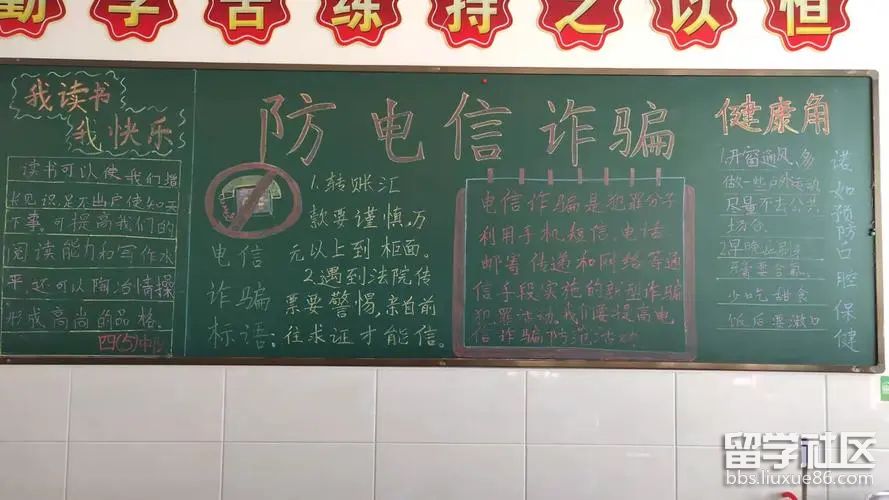 勤 学 苦 练 持 之 以 恒
我读书
我快乐
读书可以使我们增
长见识,足不出户使知天
下事,可提高我们的
阅读能力和写作水
平,还可以陶冶情操
形成高尚的品格。
四(5)中队
防电信诈骗
电信
诈骗
标语:
1.转账汇
款要谨慎,万
元以上到柜面。
2.遇到法院传
票要警惕,亲自前
往求证才能信。
电信诈骗是犯罪分子
利用手机短信、电话、
邮寄传递和网络等通
信手段实施的新型诈骗
犯罪活动,我们要提高电
信诈骗防范活动
健康角
1.开窗通风,多
做一些户外运动
尽量不去公共
场合。
2.早晚
少吃甜食
饭后要漱口
诺如预防口腔保健
留学社区
bbs.liuxue86.com